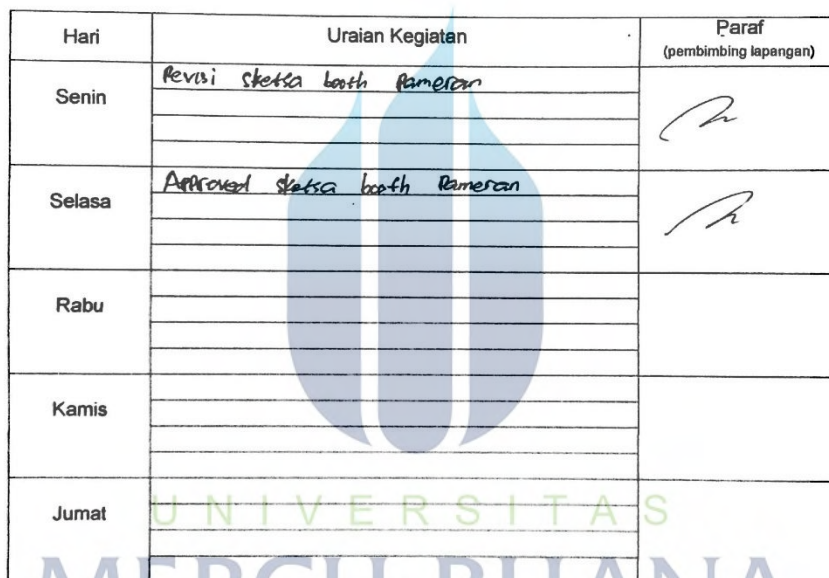 Hari Uraian Kegiatan Paraf
(pembimbing lapangan)
Senin Revisi sketsa booth Pameran
Selasa Approved sketsa booth Pameran
Rabu
Kamis
Jumat
UNIVERSITAS
MERCU BUANA